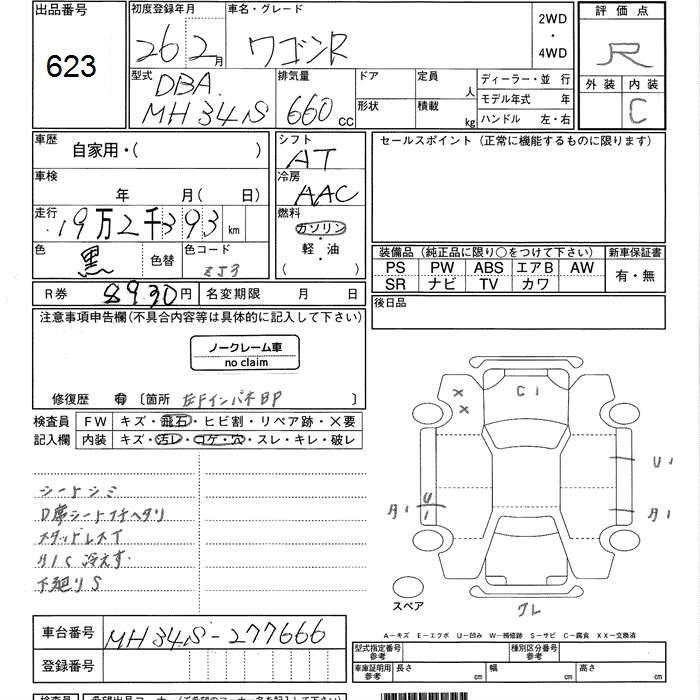 出品番号
623
初度登録年月
26 2月
車名・グレード
ワゴンR
2WD
・
4WD
評価点
R
外装 内装
C
型式
DBA
MH34S
排気量
660 CC
ドア
形状
定員 人
積載 kg
ディーラー・並行
モデル年式 年
ハンドル 左・右
車歴
自家用・( )
シフト
AT
セールスポイント (正常に機能するものに限ります)
車検
年 月( 日)
冷房
AAC
走行
19万2千393km
燃料
ガソリン
・
軽・油
( )
色
黒
色替
色コード
ZJ3
装備品 (純正品に限り○をつけて下さい)
新車保証書
PS PW ABS エアB AW
SR ナビ TV カワ
有・無
R券 8930円
名変期限 月 日
後日品
注意事項申告欄(不具合内容等は具体的に記入して下さい)
ノークレーム車
no claim
修復歴 有 〔箇所
検査員
記入欄
FW キズ・飛石・ヒビ割・リペア跡・×要
内装 キズ・汚レ・コゲ・穴・スレ・キレ・破レ
シートシミ
D席シートフチヘタリ
スタッドレスT
A/C 冷えず
下廻りS
C1
U1
U1
A1
A1
スペア
グレ
A-キズ E-エクボ U-凹み W-補修跡 S-サビ C-腐食 XX-交換済
車台番号
MH34S-277666
登録番号
型式指定番号
参考
種別区分番号
参考
車庫証明用
参考
長さ cm
幅 cm
高さ cm